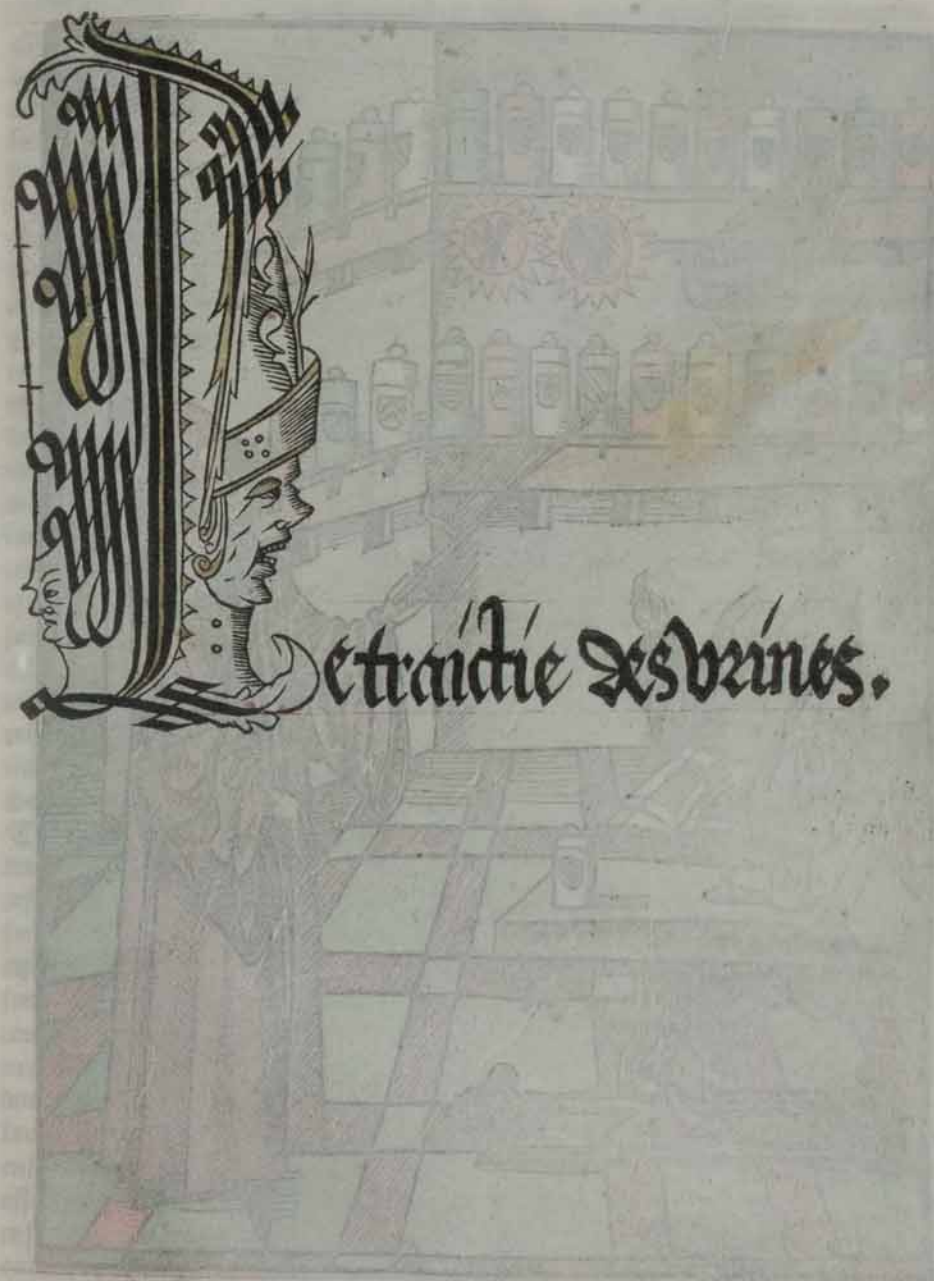 Le traictie des vrines.